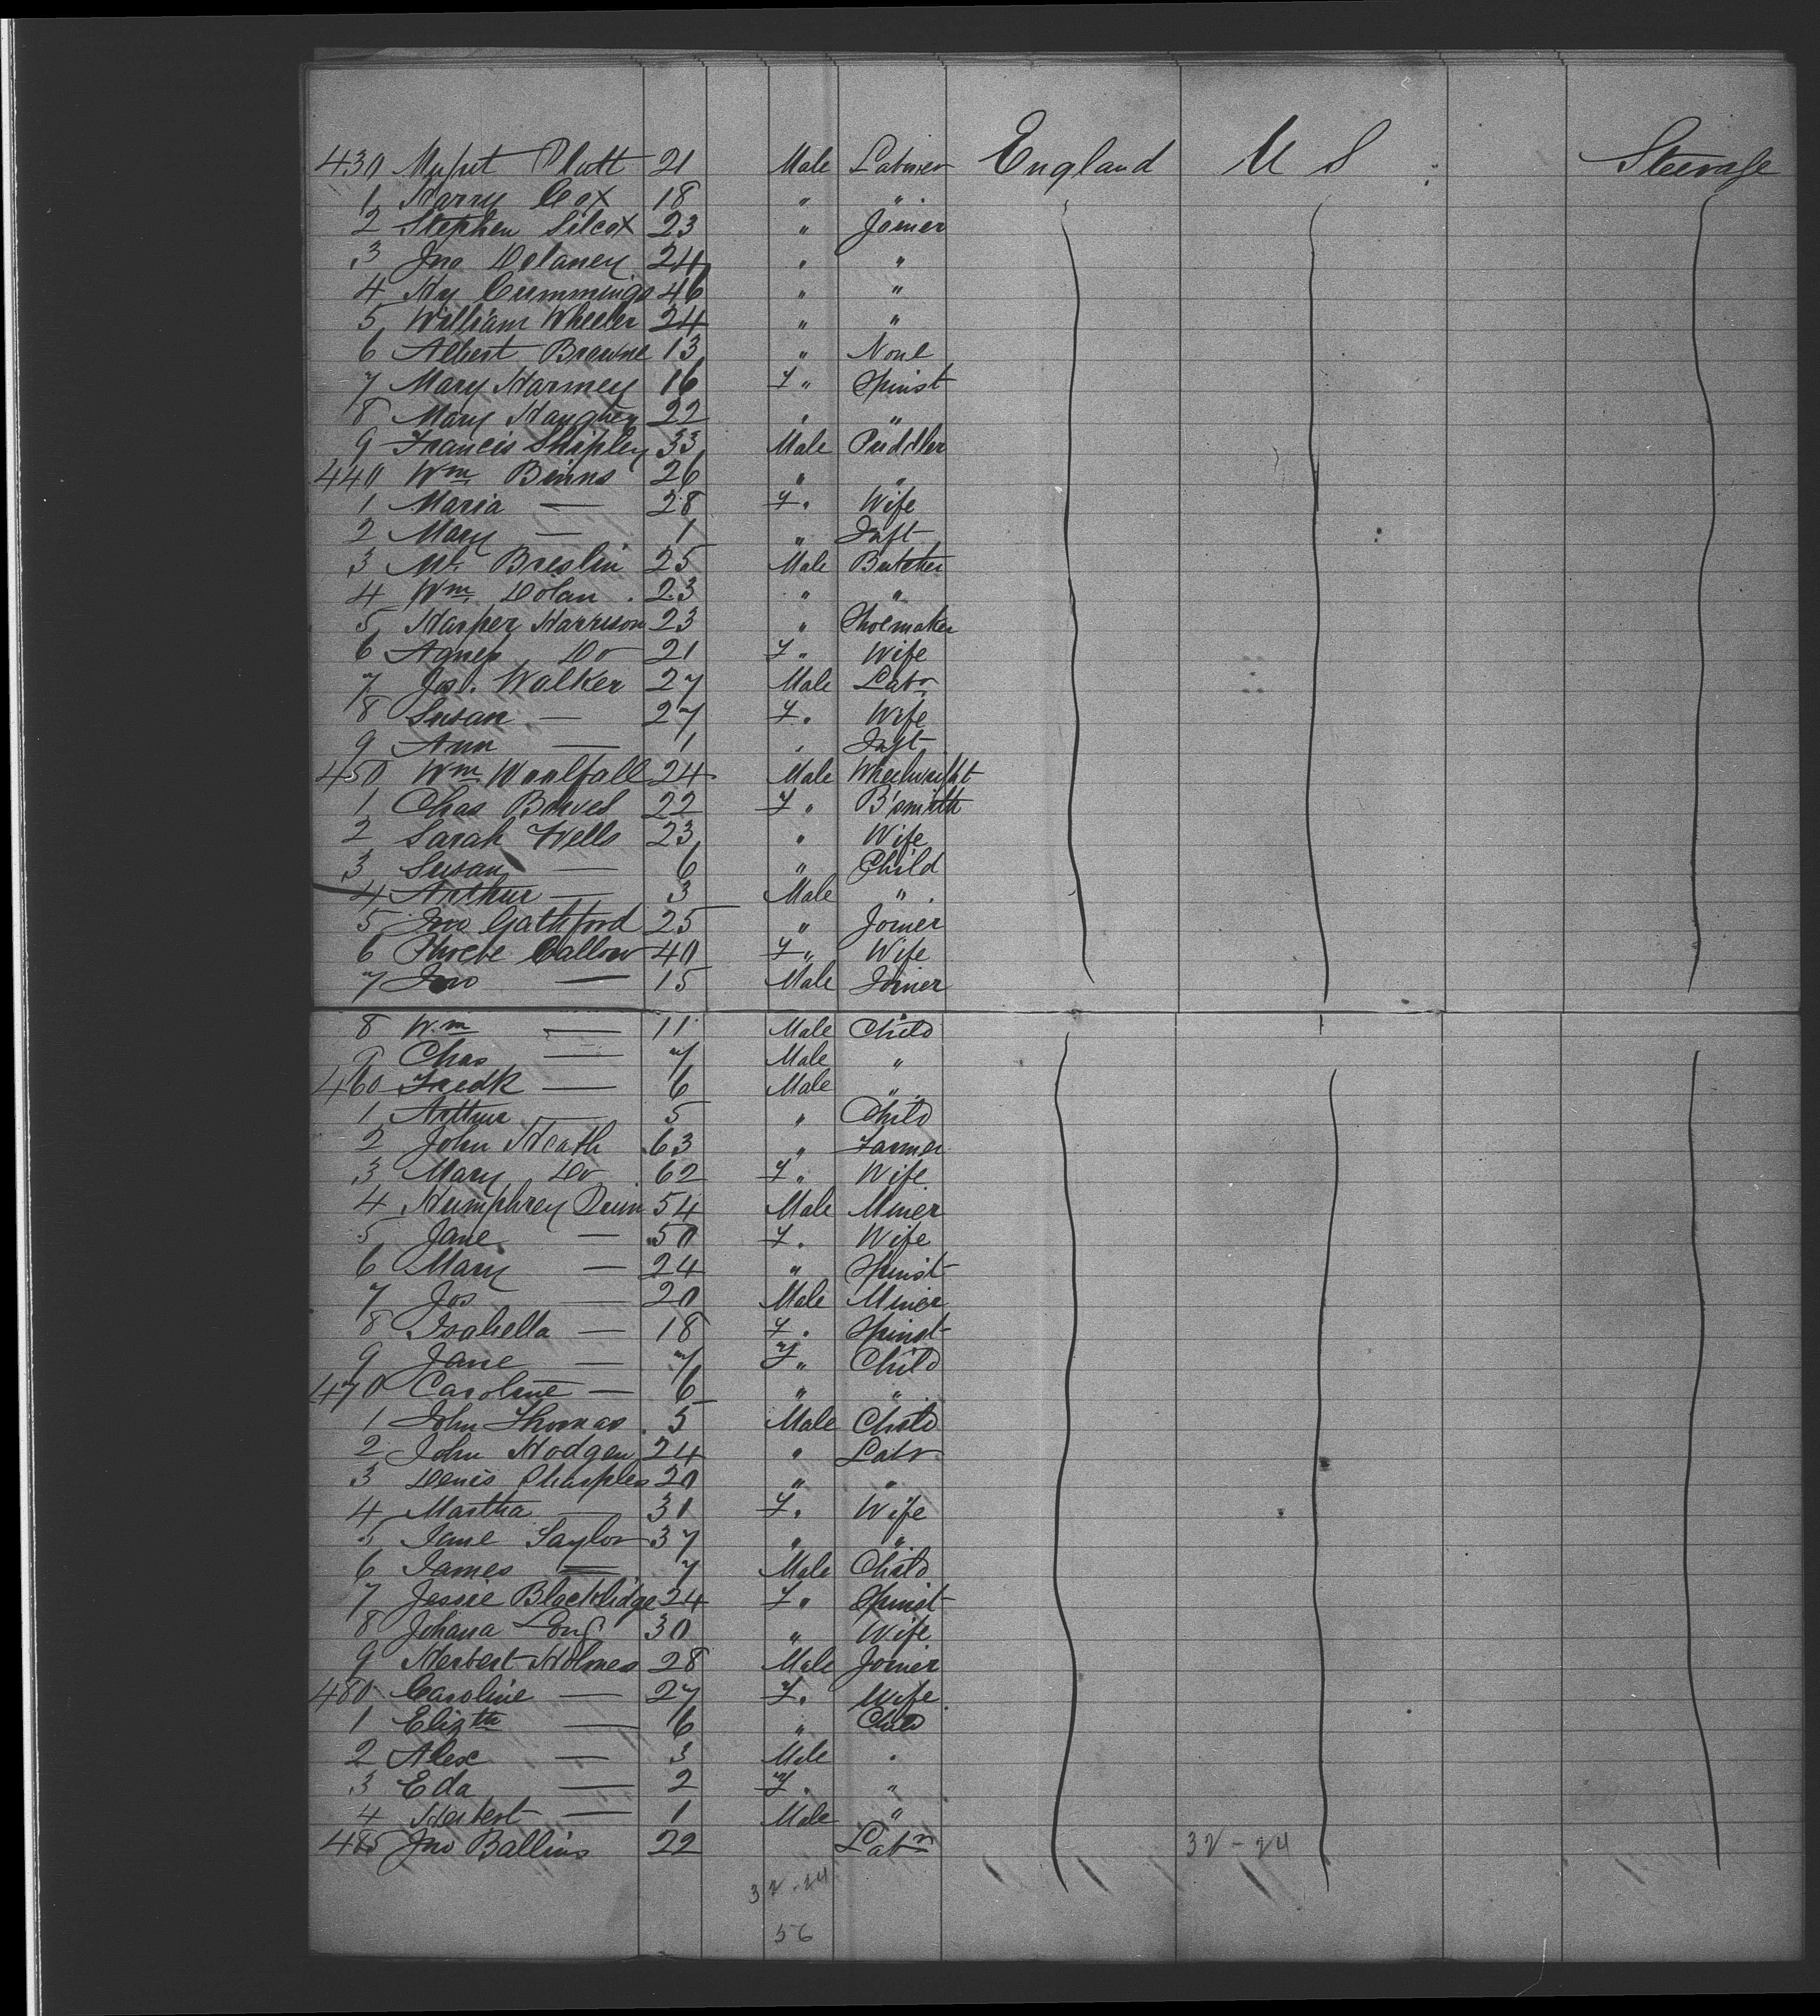 430 Platt 21 Male Labourer England U S Steerage
1 Harry Cox 18 " "
2 Stephen Silcox 23 " Joiner
3 Jno Delaney 24 " "
4 Hy Cummings 46 " "
5 William Wheeler 24 " "
6 Albert Browne 13 " None
7 Mary Harmey 16 F " Spinst
8 Mary Haughey 22 " "
9 Francis Shipley 33 Male Puddler
440 Wm Binns 26 " "
1 Maria — 28 F " Wife
2 Mary — 1 " Inft
3 Breslin 25 Male Butcher
4 Wm Dolan 23 " "
5 Harper Harrison 23 " Shoemaker
6 Agnes Do 21 F " Wife
7 Jos. Walker 27 Male Labr
8 Susan — 27 F " Wife
9 Ann — 1 " Inft
450 Wm Woolfall 24 Male Wheelwright
1 Chas 22 F " B'smith
2 Sarah Wells 23 " Wife
3 Susan — 6 " Child
4 Arthur — 3 Male "
5 Jno Gathford 25 " Joiner
6 Phoebe Callow 40 F " Wife
7 Jno — 15 Male Joiner
8 Wm — 11 Male Child
9 Chas — 7 Male "
460 Fredk — 6 Male "
1 Arthur — 5 " Child
2 John Heath 63 " Farmer
3 Mary Do 62 F " Wife
4 Humphrey Dunn 54 Male Miner
5 Jane — 50 F " Wife
6 Mary — 24 " Spinst
7 Jos — 20 Male Miner
8 Isabella — 18 F " Spinst
9 Jane — 7 F " Child
470 Caroline — 6 " "
1 John Thomas 5 Male Child
2 John Hodgen 24 " Labr
3 Denis Sharples 20 " "
4 Martha — 31 F " Wife
5 Jane Taylor 37 " "
6 James — 7 Male Child
7 Jessie Blacklidge 24 F " Spinst
8 Johana Long 30 " Wife
9 Herbert Holmes 28 Male Joiner
480 Caroline — 27 F " Wife
1 Elizth — 6 " Child
2 Alex — 3 Male "
3 Eda — 2 F " "
4 Herbert — 1 Male "
485 Jno Ballins 22 Labr 32-24
32-24
56